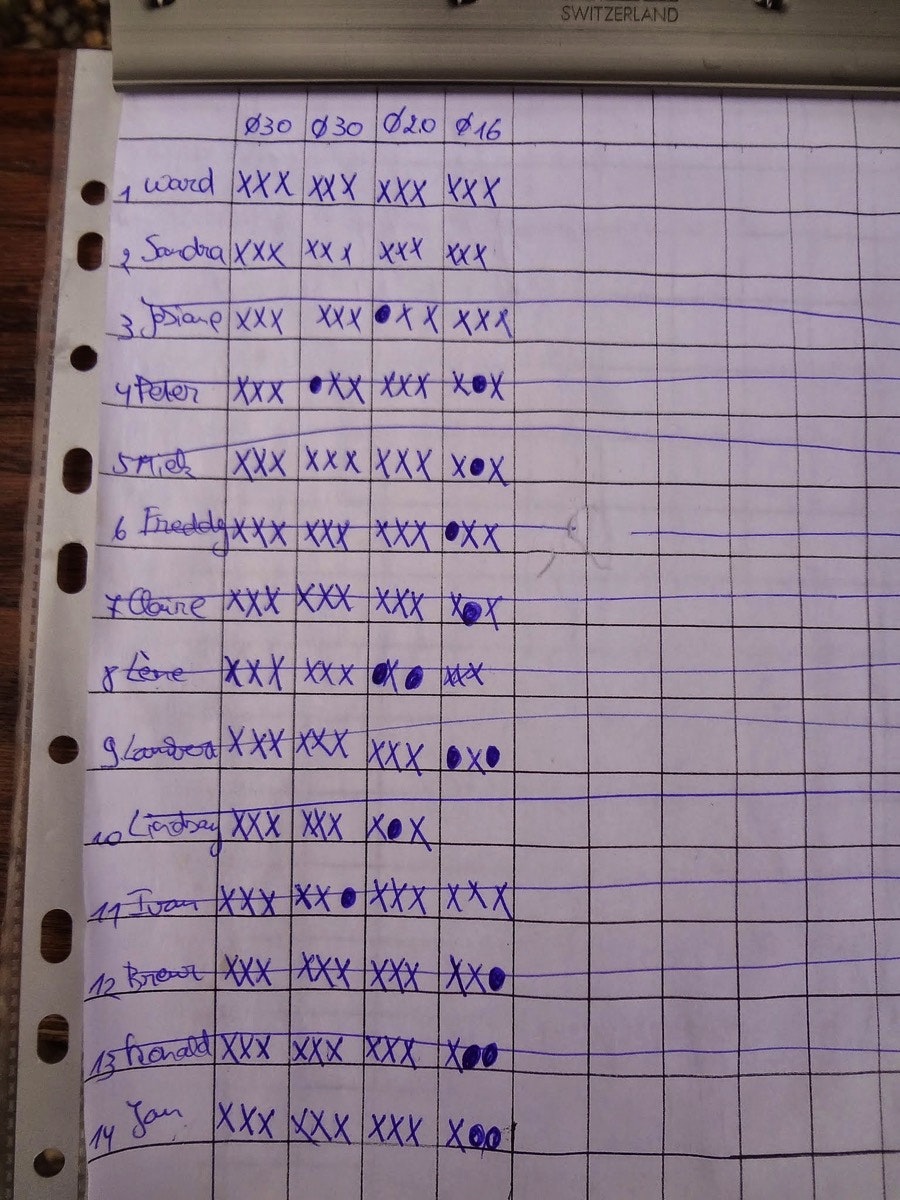 SWITZERLAND
Ø30 Ø30 Ø20 Ø16
1 Ward XXX XXX XXX XXX
2 Sandra XXX XXX XXX XXX
3 Josiane XXX XXX ●XX XXX
4 Peter XXX ●XX XXX X●X
5 XXX XXX XXX X●X
6 Freddy XXX XXX XXX ●XX
7 Claire XXX XXX XXX X●X
8 Lène XXX XXX ●X● XXX
9 XXX XXX XXX ●X●
10 Lindsay XXX XXX X●X
11 Ivan XXX XX● XXX XXX
12 XXX XXX XXX XX●
13 Ronald XXX XXX XXX X●●
14 Jan XXX XXX XXX X●●